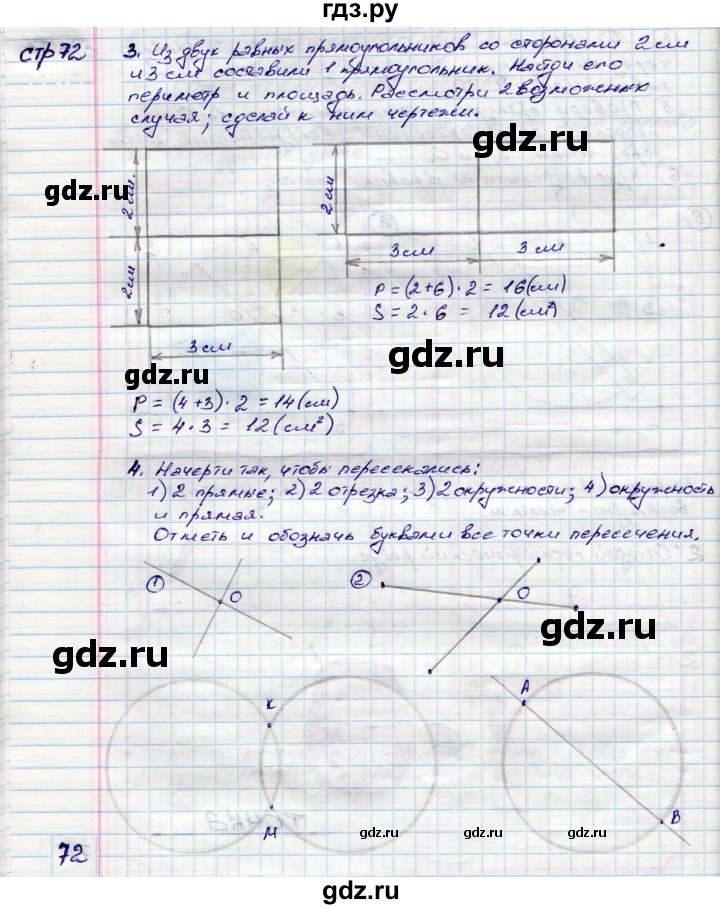 гдз.ру
стр 72
3. Из двух равных прямоугольников со сторонами 2 см
и 3 см составили 1 прямоугольник. Найди его
периметр и площадь. Рассмотри 2 возможных
случая; сделай к ним чертежи.
gdz.ru
gdz.ru
2 см
2 см
2 см
3 см
3 см
P = (2+6) · 2 = 16 (см)
S = 2 · 6 = 12 (см²)
gdz.ru
gdz.ru
3 см
gdz.ru
P = (4+3) · 2 = 14 (см)
S = 4 · 3 = 12 (см²)
gdz.ru
4. Начерти так, чтобы пересекались:
1) 2 прямые; 2) 2 отрезка; 3) 2 окружности; 4) окружность
и прямая.
Отметь и обозначь буквами все точки пересечения.
1
O
2
O
gdz.ru
gdz.ru
К
А
М
В
gdz.ru
gdz.ru
gdz.ru
72
gdz.ru